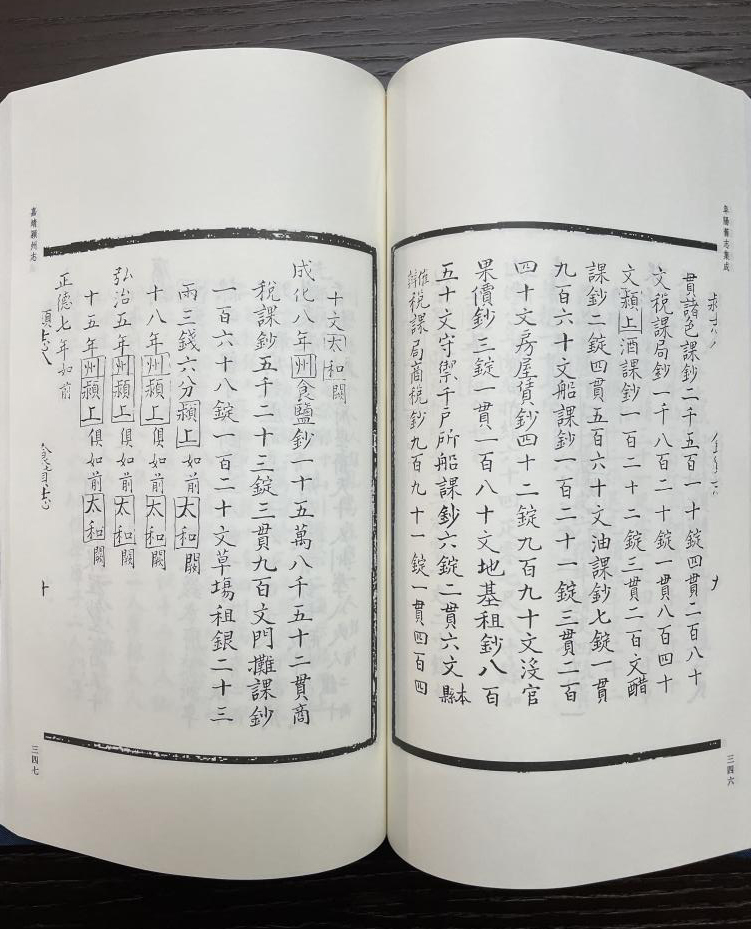 阜陽舊志集成
貫諸色課鈔二千五百一十錠四貫二百八十
文稅課局鈔一千八百二十錠一貫八百四十
文潁上酒課鈔一百二十二錠三貫二百文醋
課鈔二錠四貫五百六十文油課鈔七錠一貫
九百六十文船課鈔一百二十一錠三貫二百
四十文房屋賃鈔四十二錠九百九十文没官
果價鈔三錠一貫一百八十文地基租鈔八百
五十文守禦千戸所船課鈔六錠二貫六文本縣
稅課局商稅鈔九百九十一錠一貫四百四
三四六
十文太和闕
成化八年州食鹽鈔一十五萬八千五十二貫商
稅課鈔五千二十三錠三貫九百文門攤課鈔
一百六十八錠一百二十文草塲租銀二十三
兩三錢六分潁上俱如前太和闕
十八年州潁上俱如前太和闕
弘治五年州潁上俱如前太和闕
十五年州潁上俱如前太和闕
正德七年如前
食貨志
十
嘉靖潁州志
三四七